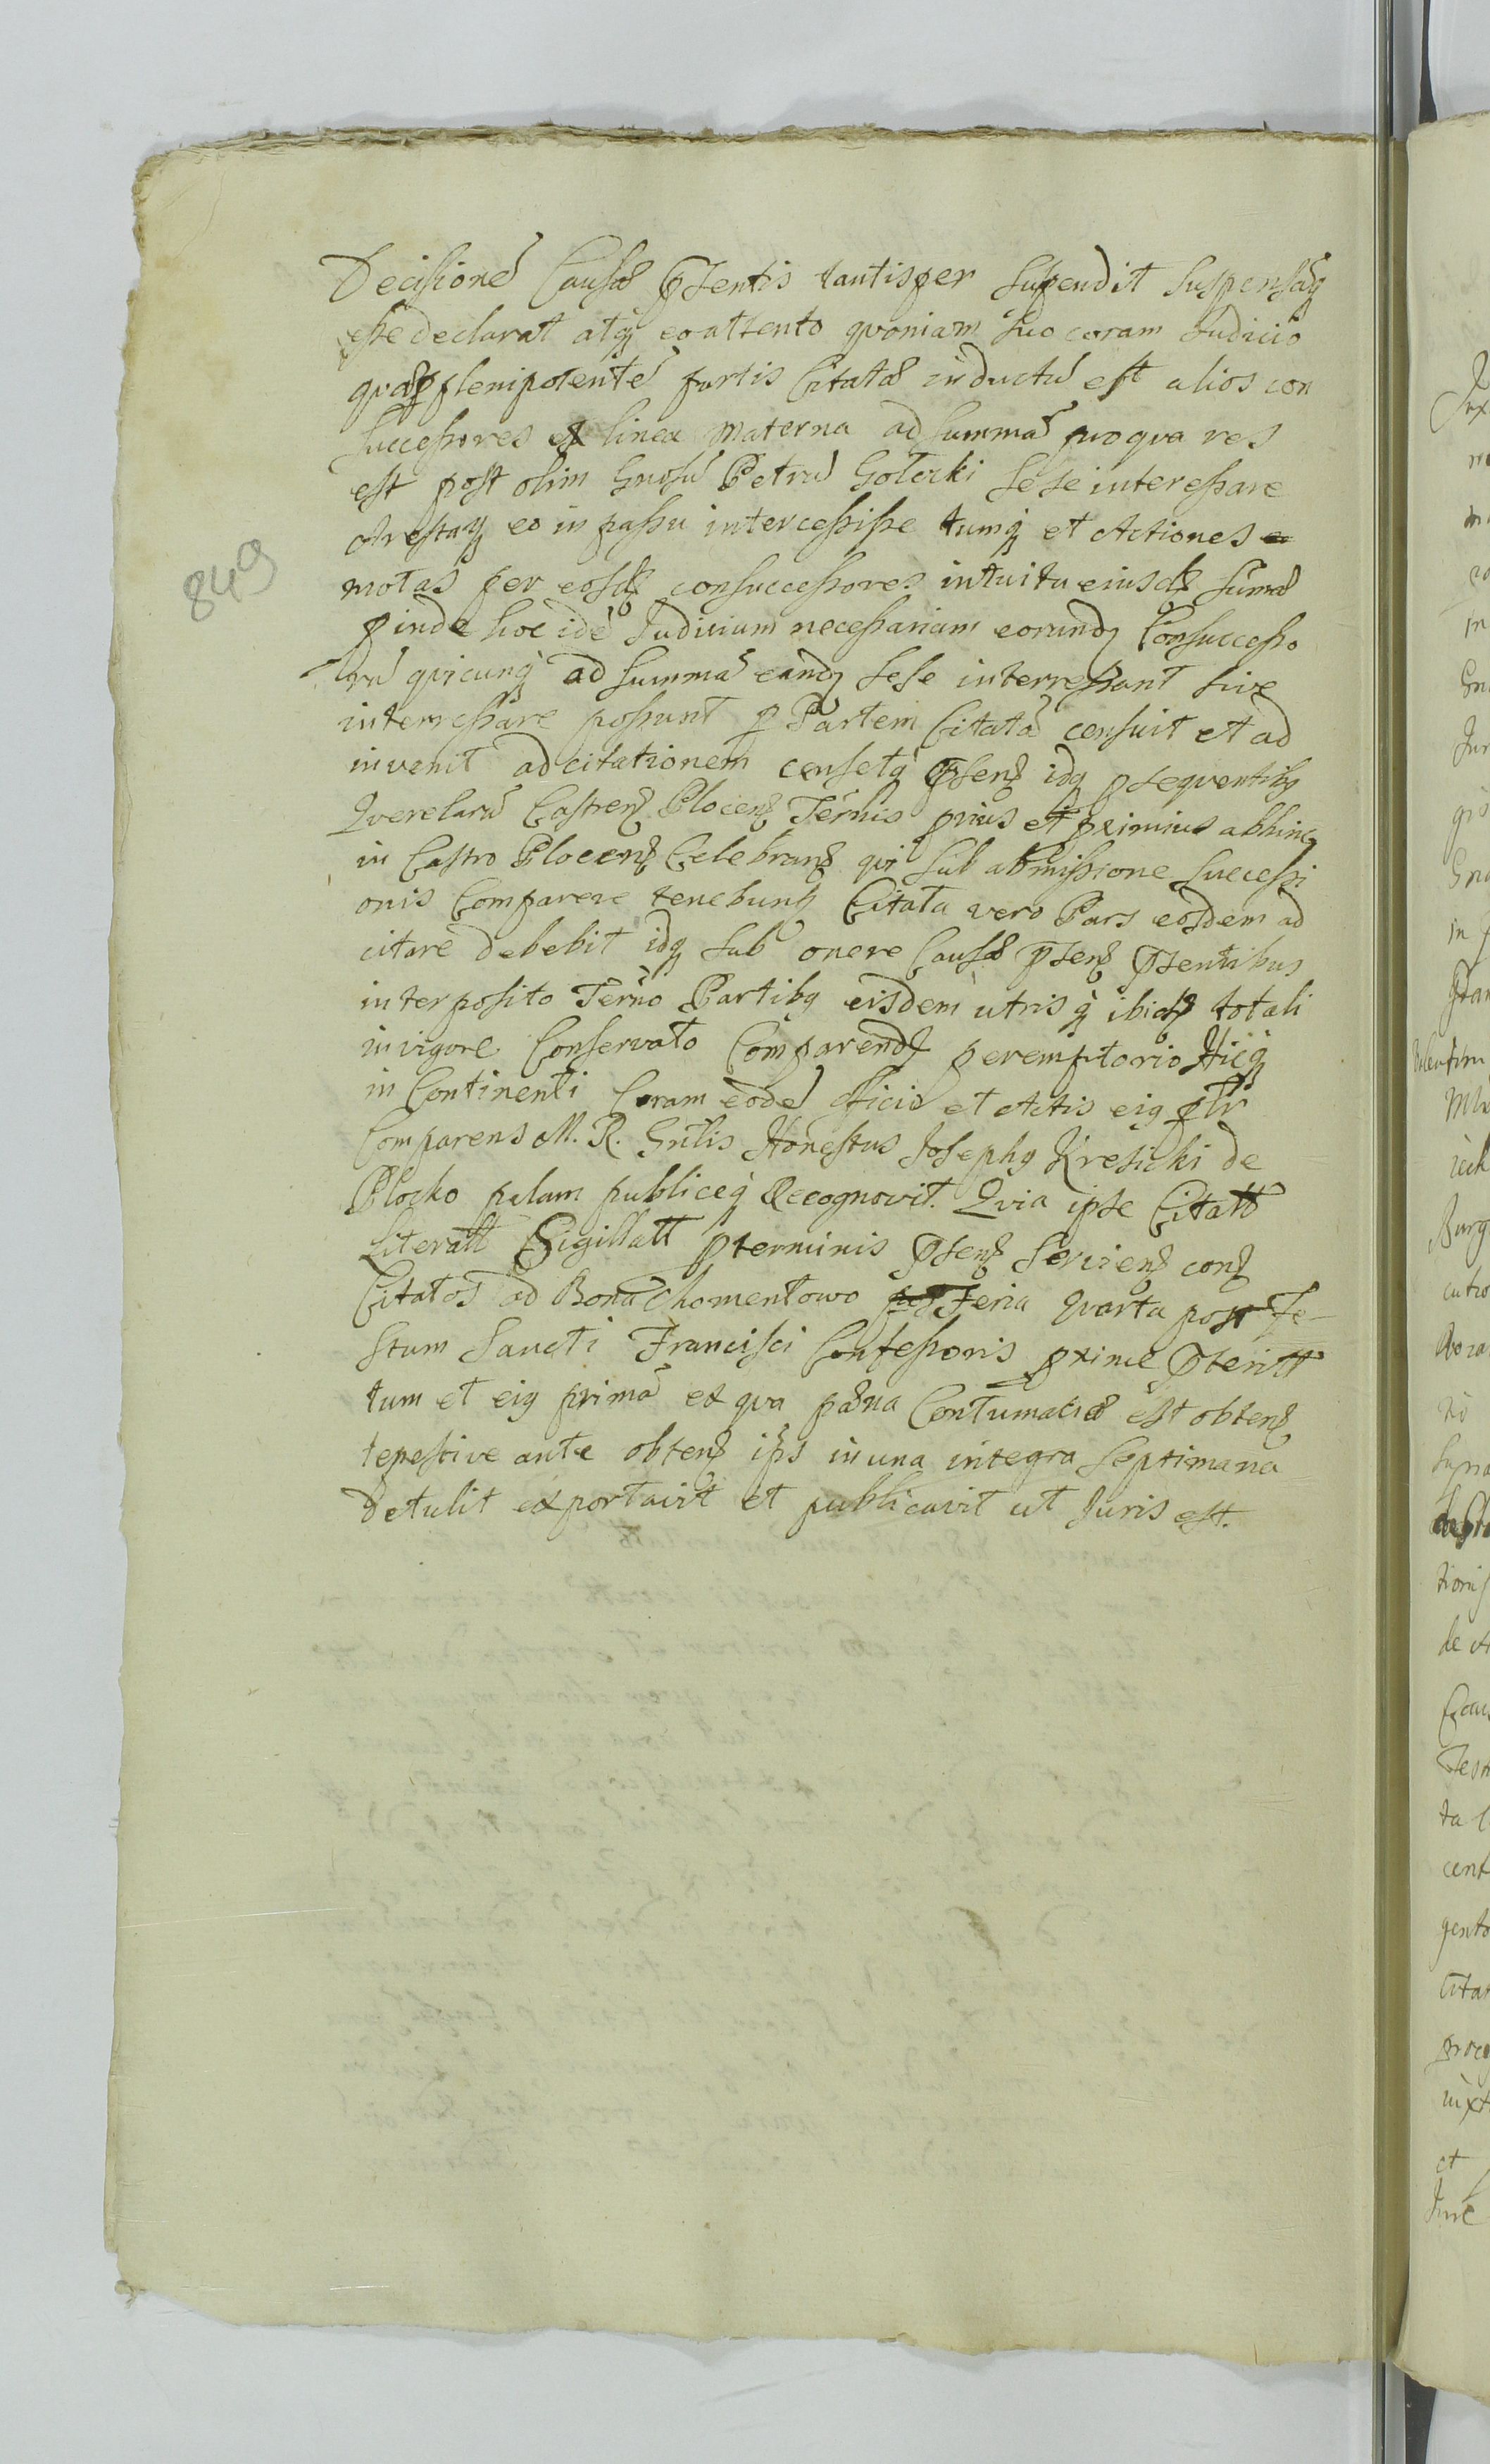 Decisione Causæ pſentis tantisper ſuspendit ſuspensaq
eſse declarat atq eo attento qvoniam ſuo coram Judicio
qvia p plenipotente partis Citatæ inductu eſt alios con
ſucceſsores ex linea Materna ad ſummã pro qva res
eſt poſt olim Gnosũ Petrũ Golecki ſeſe intereſsare
Areſtaq eo in paſsu interceſsiſse tumq et Actiones
motas per eoſdȝ conſucceſsores intuitu eiusdȝ ſumæ
p inde hoc idẽ Judicium neceſsariam eorundȝ Conſucceſso
rũ qvicunq ad ſummã eandȝ ſeſe intereſsant ſive
intereſsare poſsunt p Partem Citatã cenſuit et ad
invenit adcitationem cenſetq pſenȝ idq pſeqventibȝ
Qverelarũ Caſtrenȝ Plocenȝ Termis prius et primius abhinc
in Caſtro Plocenȝ Celebranȝ qvi ſub abmiſsione ſucceſsi
onis Comparere tenebunt Citata vero Pars eosdem ad
citare debebit idq ſub onere Cauſæ pſenȝ pſentibus
interpoſito Termo Partibȝ eisdem utrisq ibidȝ totali
in vigore Conſervato Comparendȝ peremptorio Hicq
in Continenti Coram eodẽ officio et Actis eiȝ pſtr
Comparens M. R. Gnlis Honeſtus Joſephȝ Kreſicki de
Plocko palam publiceq Recognovit. Qvia ipſe Citatt
Literatt Sigillatt p terminis pſenȝ ſervienȝ conȝ
Citatos ad Bona Chomentowo Feria Qvarta poſt Fe-
ſtum Sancti Franciſci Confeſsoris pxime pteritt
tum et eiȝ primã ex qva pæna Contumaciæ eſt obtenȝ
tepeſtive ante obtenȝ ipſ in una integra ſeptimana
detulit exportavit et publicavit ut Juris eſt.
849